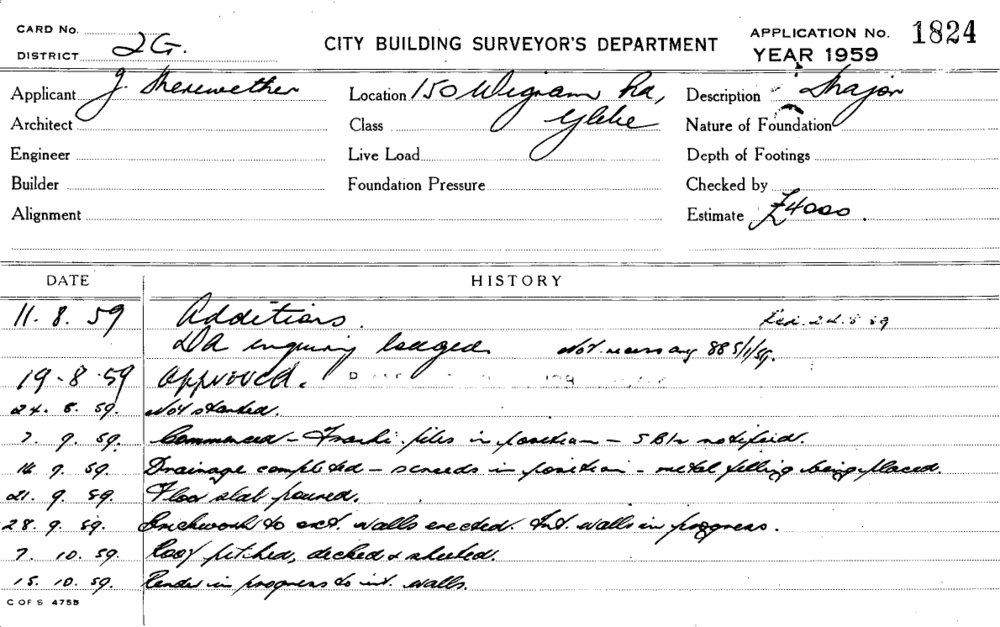 CARD No.
DISTRICT 2G.
CITY BUILDING SURVEYOR'S DEPARTMENT
APPLICATION No. 1824
YEAR 1959
Applicant J. Merewether
Location 150 Wigram Rd,
Glebe
Description Major
Architect
Class
Nature of Foundation
Engineer
Live Load
Depth of Footings
Builder
Foundation Pressure
Checked by
Alignment
Estimate £4000.
DATE HISTORY
11. 8. 59 Additions. 24.8.59
DA enquiry lodged. Not necessary
19. 8. 59 Approved.
24. 8. 59. Not started.
7. 9. 59. Commenced - Franki piles in position - notified.
14. 9. 59. Drainage completed - screeds in position - metal filling being placed.
21. 9. 59. Floor slab poured.
28. 9. 59. Brickwork to ext. walls erected. Int. walls in progress.
7. 10. 59. Roof pitched, decked & sheeted.
15. 10. 59. Render in progress to int. walls.
C OF S 475B